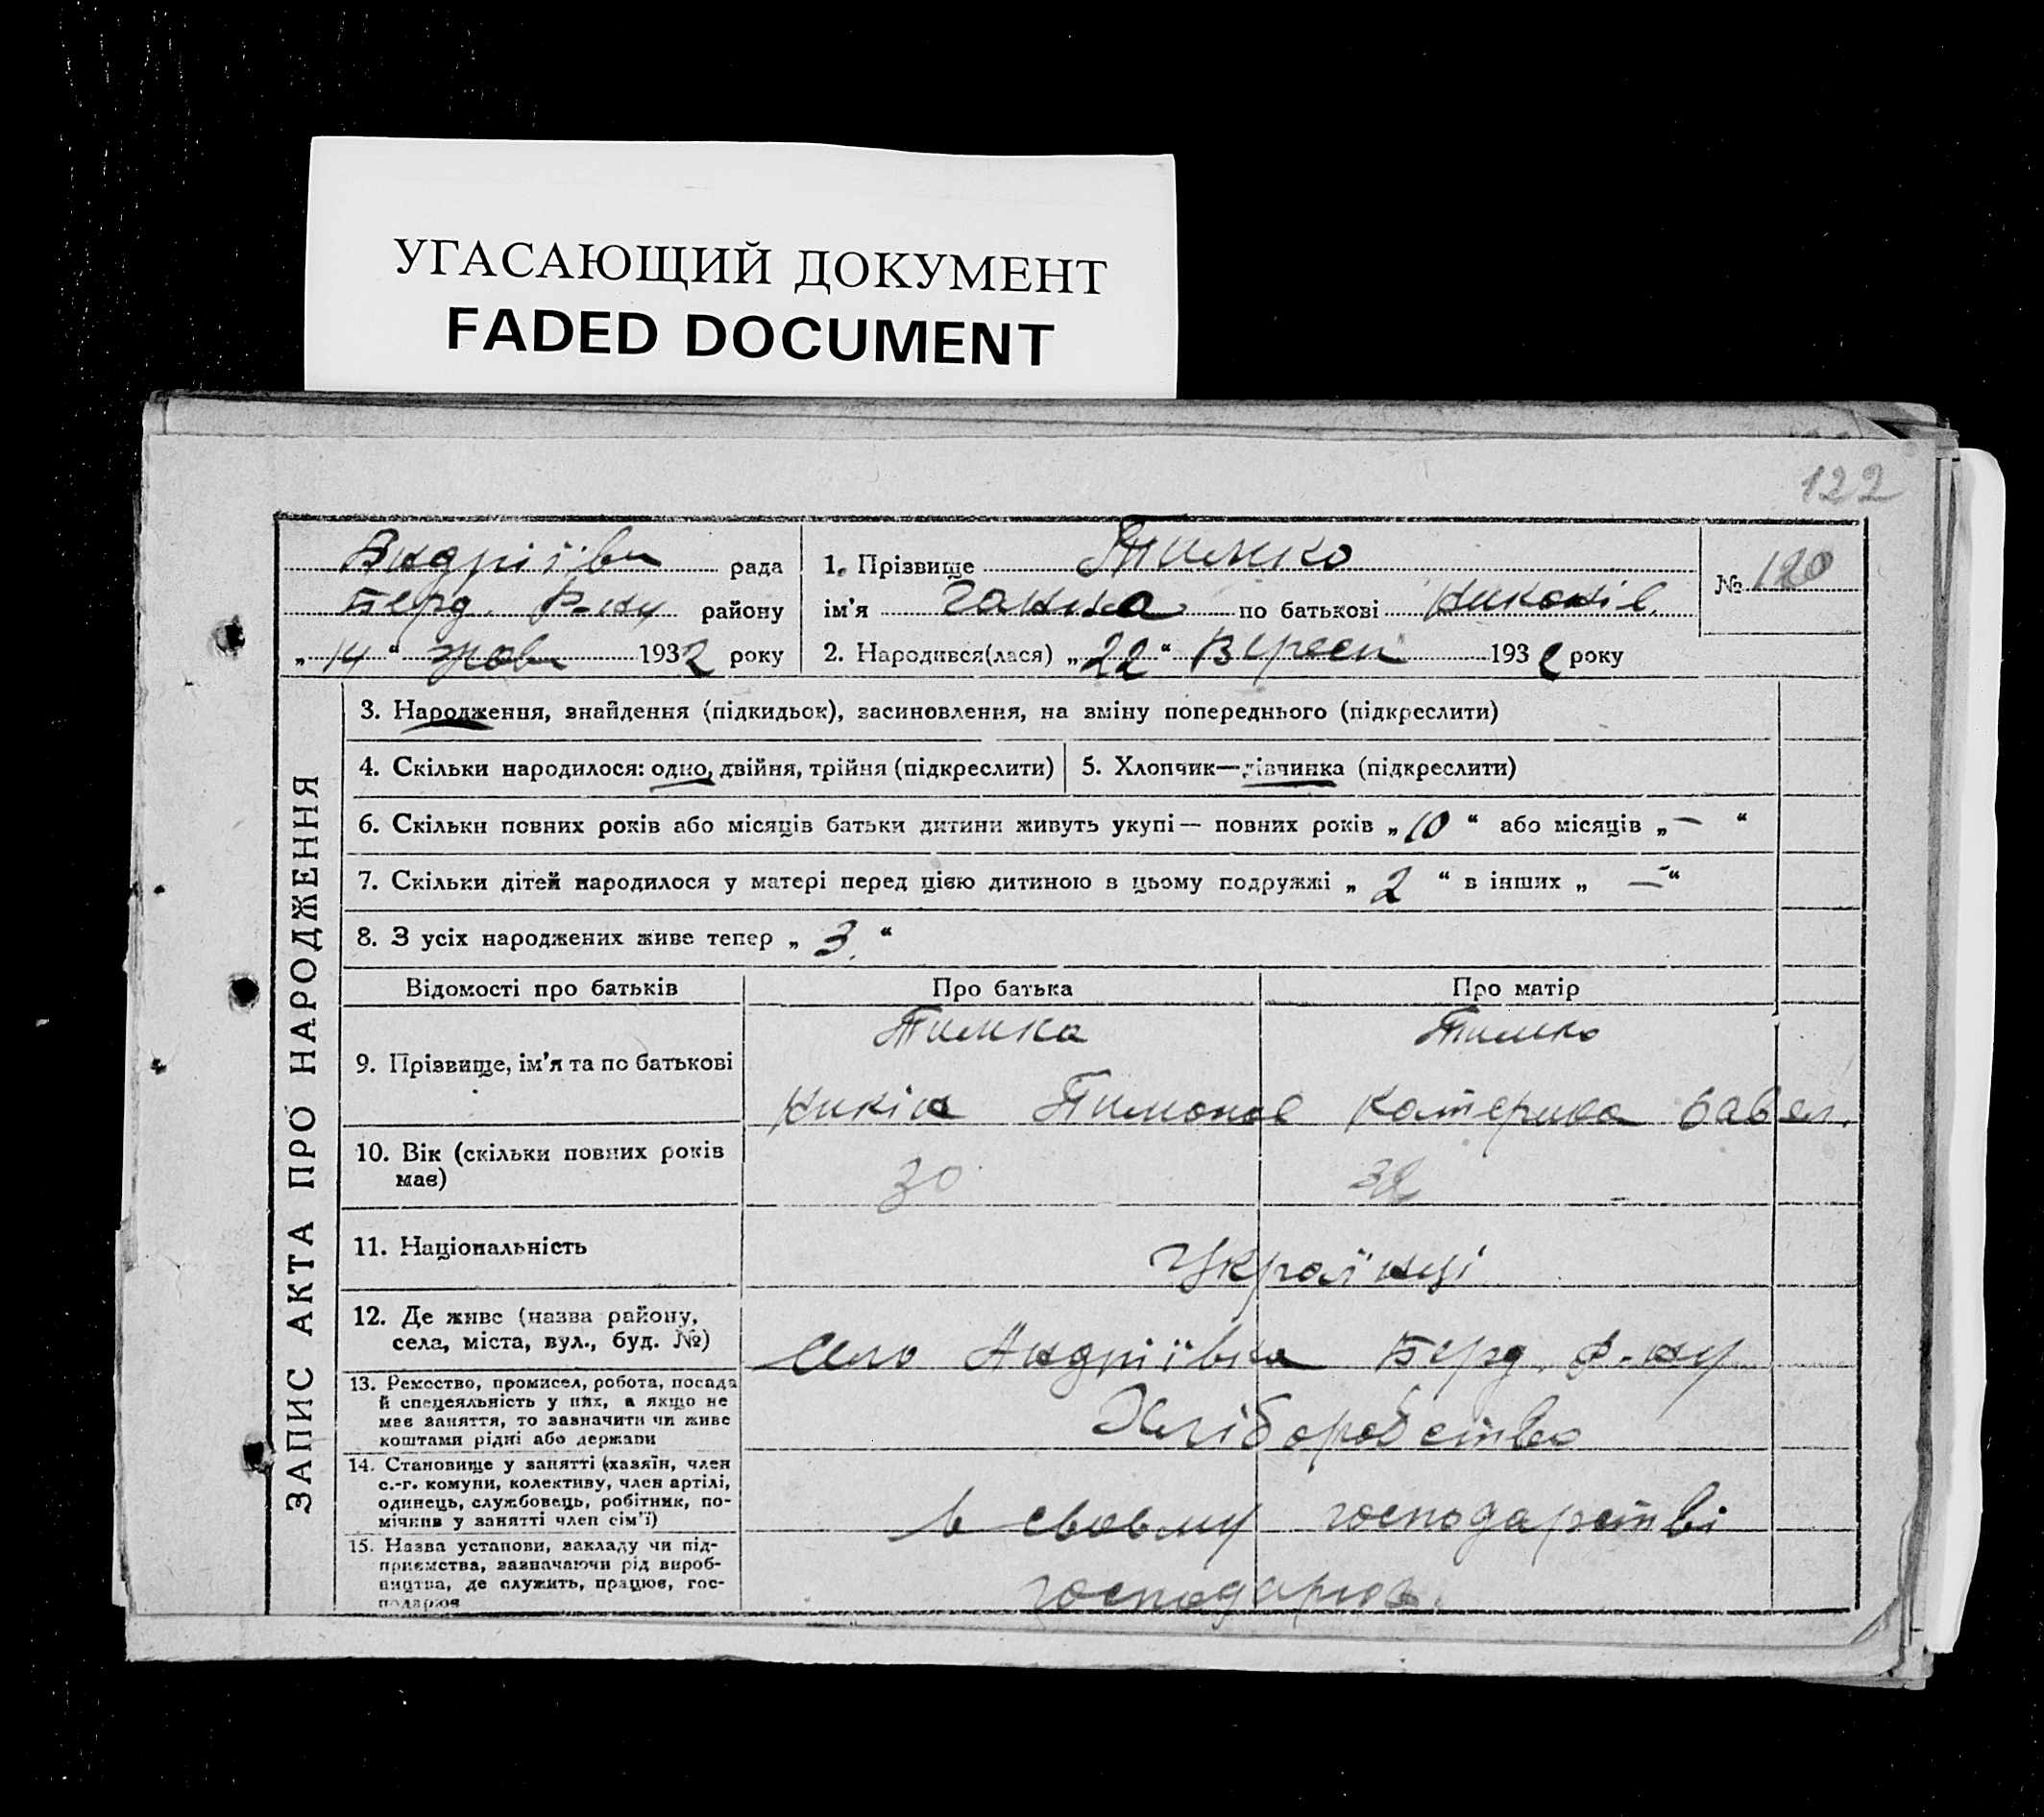 УГАСАЮЩИЙ ДОКУМЕНТ
FADED DOCUMENT
122
Андріїв рада
Берд. Р-ну району
„14“ жовт 1932 року
1. Прізвище Тимко
ім'я Ганна по батькові Никонів.
2. Народився(лася) „22“ Вересн 1932 року
№ 120
ЗАПИС АКТА ПРО НАРОДЖЕННЯ
3. Народження, знайдення (підкидьок), засиновлення, на зміну попереднього (підкреслити)
4. Скільки народилося: одно, двійня, трійня (підкреслити)
5. Хлопчик—дівчинка (підкреслити)
6. Скільки повних років або місяців батьки дитини живуть укупі— повних років „10“ або місяців „—“
7. Скільки дітей народилося у матері перед цією дитиною в цьому подружжі „2“ в інших „—“
8. З усіх народжених живе тепер „3.“
Відомості про батьків Про батька Про матір
Тимка Тимко
9. Прізвище, ім'я та по батькові
Никін Тимонов Катерина Павл.
10. Вік (скільки повних років
має) 30
11. Національність Українці
12. Де живе (назва району,
села, міста, вул., буд. №) Село Андріївка Берд. Р-ну
13. Ремество, промисел, робота, посада
й спецеяльність у них, а якщо не
має заняття, то зазначити чи живе
коштами рідні або держави
Хліборобство
14. Становище у занятті (хазяїн, член
с.-г. комуни, колективу, член артілі,
одинець, службовець, робітник, по-
мічник у занятті член сім'ї)
в своєму господарстві
15. Назва установи, закладу чи під-
приємства, зазначаючи рід вироб-
ництва, де служить, працює, гос-
подарює
господарює.